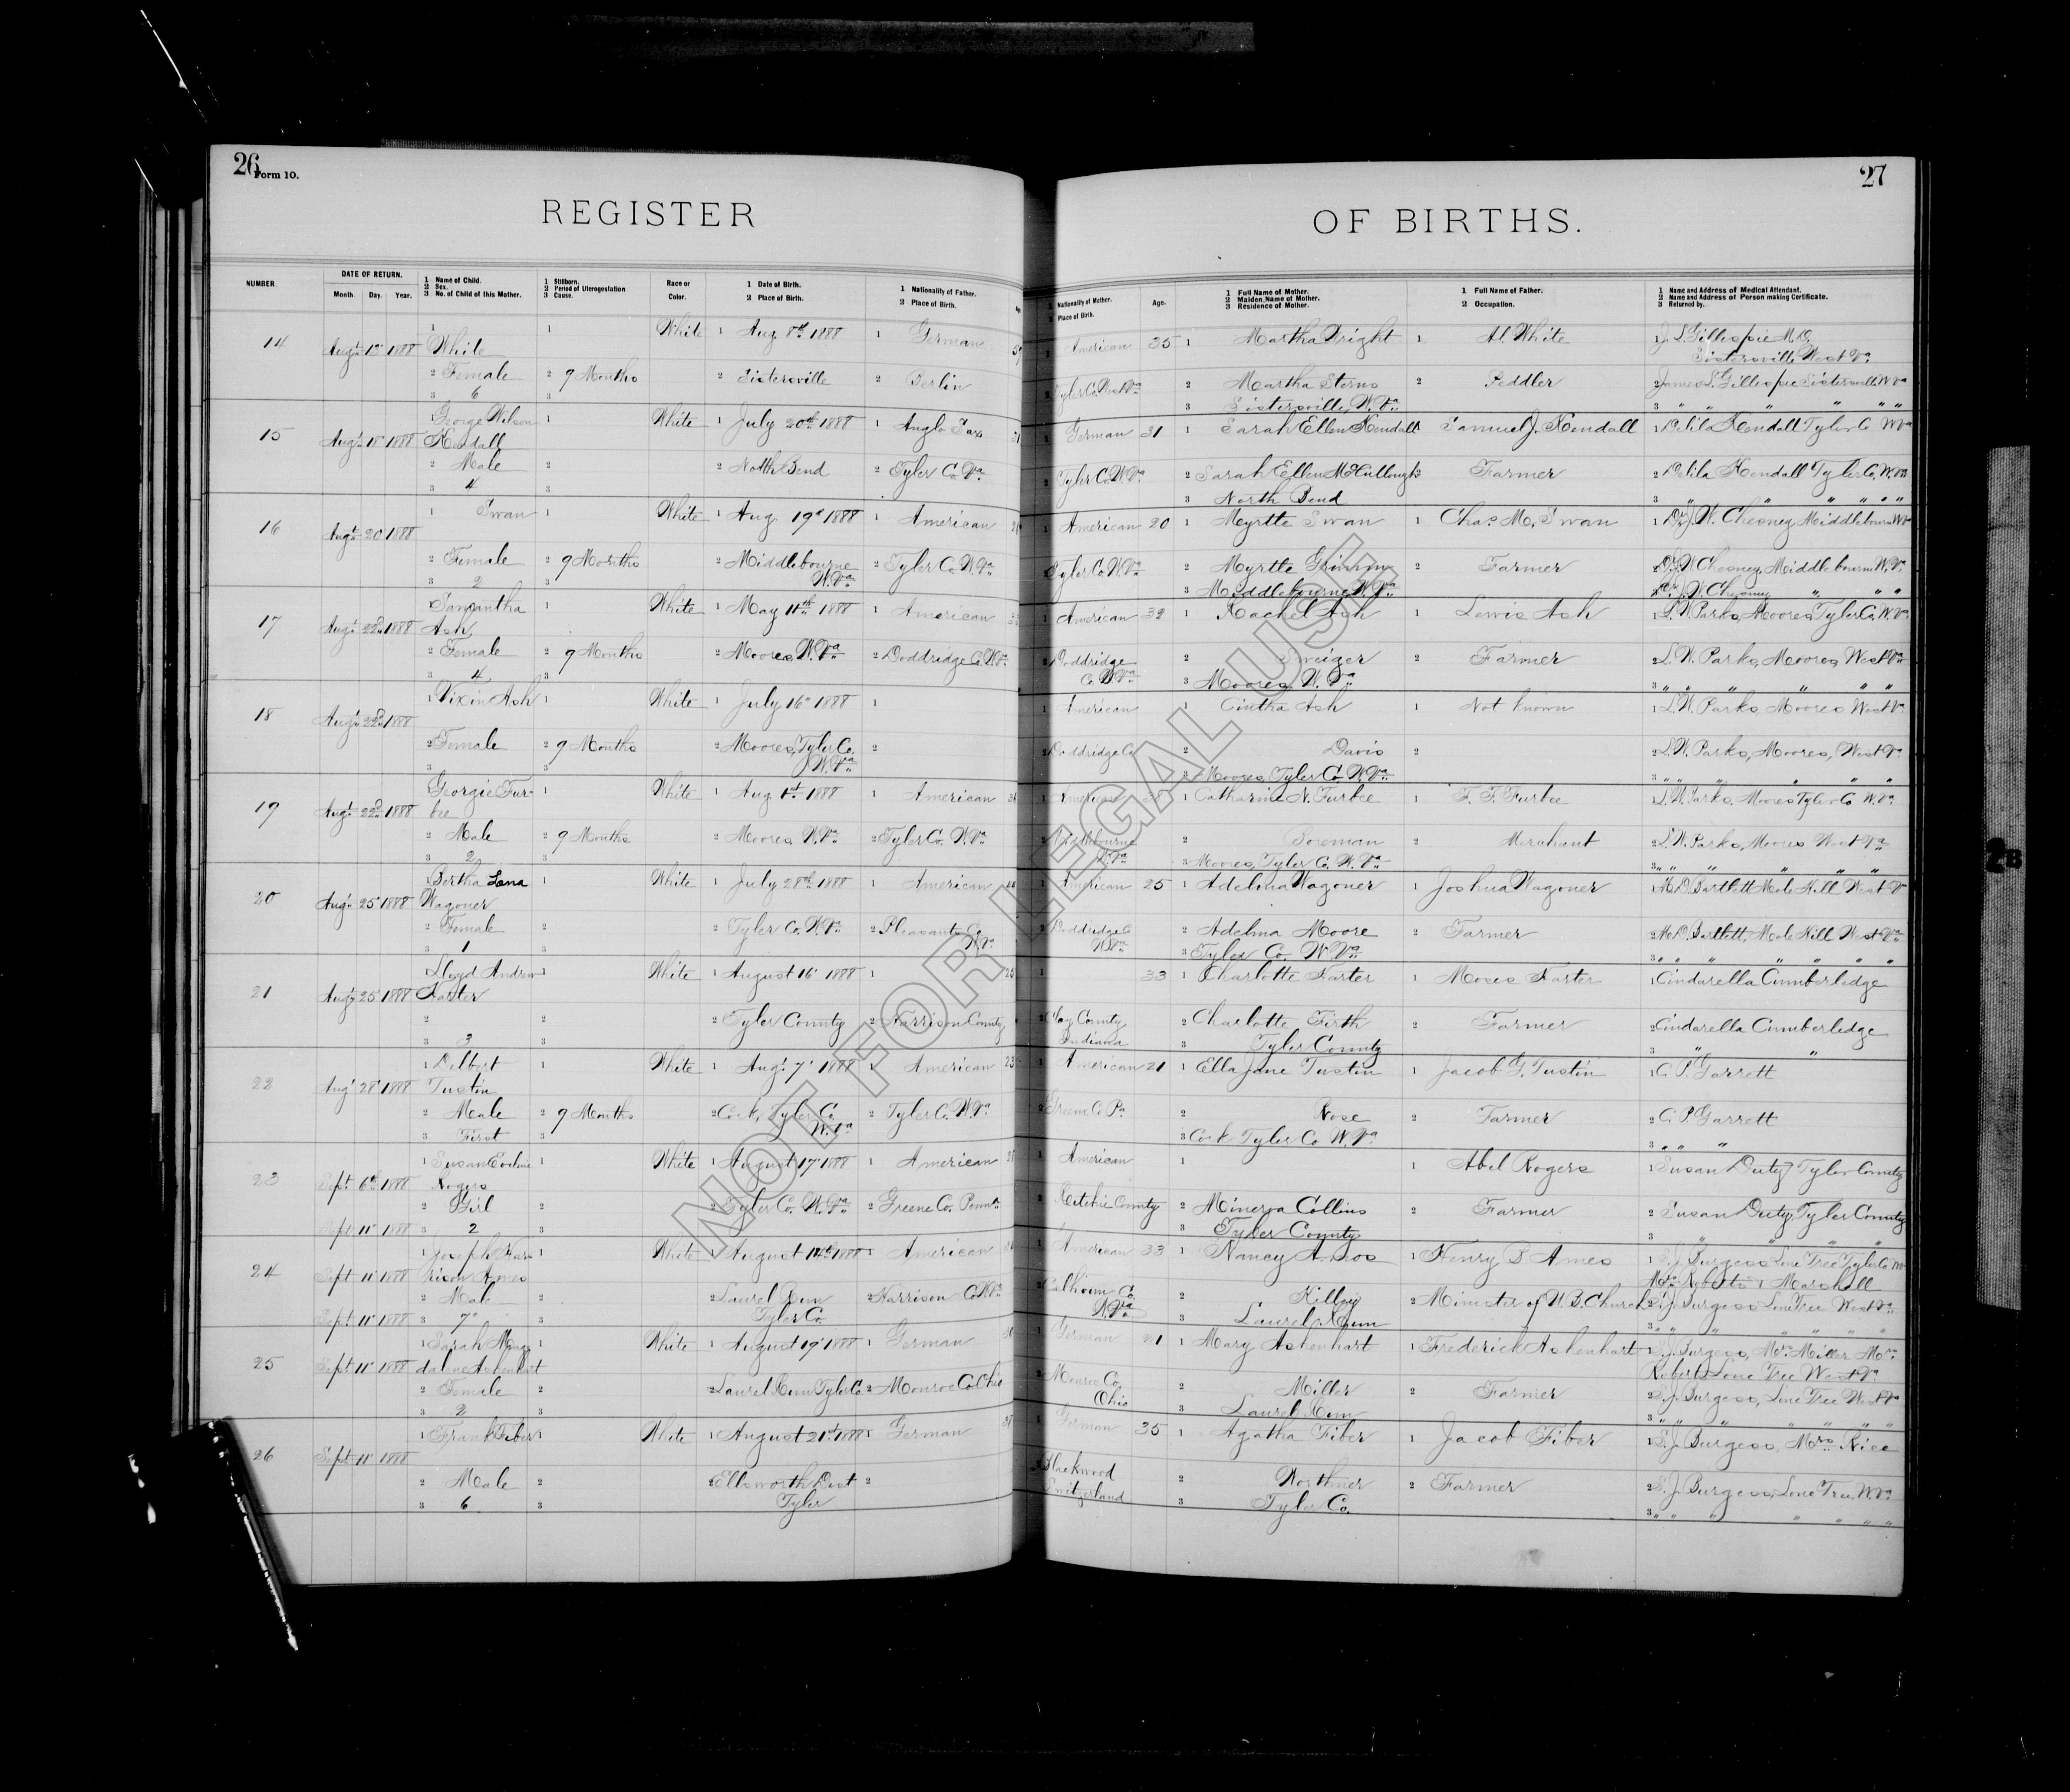 26
Form 10.
REGISTER
NUMBER.
DATE OF RETURN.
Month. Day. Year.
1 Name of Child.
2 Sex.
3 No. of Child of this Mother.
1 Stillborn.
2 Period of Uterogestation
3 Cause.
Race or
Color.
1 Date of Birth.
2 Place of Birth.
1 Nationality of Father.
2 Place of Birth.
14 Augt 13 1888 1 White 1 White 1 Aug 8th 1888 1 German
2 Female 2 9 Months 2 Sistersville 2 Berlin
3 6 3
15 Augt 18 1888 1 George Wilson 1 White 1 July 20th 1888 1 Anglo Sax
Kendall
2 Male 2 2 North Bend 2 Tyler Co. Va
3 4 3
16 Augt 20 1888 1 Swan 1 White 1 Aug 19th 1888 1 American
2 Female 2 9 Months 2 Middlebourne 2 Tyler Co. W. Va
3 2 3 W. Va
17 Augt 22d 1888 1 Samantha 1 White 1 May 11th 1888 1 American
Ash
2 Female 2 9 Months 2 Moores W. Va 2 Doddridge Co. W. Va
3 4 3
18 Augt 22d 1888 1 Vixin Ash 1 White 1 July 16 1888 1
2 Female 2 9 Months 2 Moores, Tyler Co. 2
3 3 W. Va
19 Augt 22d 1888 1 Georgie Fur- 1 White 1 Aug 1st 1888 1 American
bee
2 Male 2 9 Months 2 Moores W. Va 2 Tyler Co. W. Va
3 2 3
20 Augt 25 1888 1 Bertha Lena 1 White 1 July 28th 1888 1 American
Wagoner
2 Female 2 2 Tyler Co. W. Va 2 Pleasants Co.
3 1 3 W. Va
21 Augt 25 1888 1 Lloyd Andrew 1 White 1 August 16 1888 1 25
Farter
2 2 2 Tyler County 2 Harrison County
3 3 3
22 Augt 28 1888 1 Delbert 1 White 1 Aug. 7 1888 1 American 23
Tustin
2 Male 2 9 Months 2 Cork, Tyler Co. 2 Tyler Co. W. Va
3 First 3 W. Va
23 Sept 6th 1888 1 Susan Eveline 1 White 1 August 17 1888 1 American
Rogers
2 Girl 2 2 Tyler Co. W. Va 2 Greene Co. Penna
Sept 11 1888 3 2 3
24 Sept 11 1888 1 Joseph Har 1 White 1 August 14th 1888 1 American
rison Ames
2 Male 2 2 Laurel Run 2 Harrison Co W Va
Sept 11 1888 3 7 3 Tyler Co.
25 Sept 11 1888 1 Sarah Mag 1 White 1 August 19 1888 1 German
dalene Ashenhart
2 Female 2 2 Laurel Run Tyler Co 2 Monroe Co Ohio
3 2 3
26 Sept 11 1888 1 Frank Fiber 1 White 1 August 21st 1888 1 German
2 Male 2 2 Ellsworth Dist 2
3 6 3 Tyler
27
OF BIRTHS.
Nationality of Mother.
Place of Birth.
Age.
1 Full Name of Mother.
2 Maiden Name of Mother.
3 Residence of Mother.
1 Full Name of Father.
2 Occupation.
1 Name and Address of Medical Attendant.
2 Name and Address of Person making Certificate.
3 Returned by.
1 American 35 1 Martha Wright 1 Al. White 1 J. S. Gillespie M. D.
Sistersville West Va
2 Tyler Co. West Va 2 Martha Sterns 2 Peddler 2 James S. Gillespie Sistersville W Va
3 Sistersville, W. Va 3 " " " " " "
1 German 31 1 Sarah Ellen Kendall Samuel J. Kendall 1 Delila Kendall Tyler Co W Va
2 Tyler Co. W. Va 2 Sarah Ellen McCullough 2 Farmer 2 Delila Kendall Tyler Co. W. Va
3 North Bend 3 " " " " " "
1 American 20 1 Myrtle Swan 1 Chas. M. Swan 1 Dr J. W. Chesney Middlebourne W Va
Tyler Co W. Va 2 Myrtle Grimm 2 Farmer 2 Dr J. W. Chesney Middlebourne W. Va
3 Middlebourne W. Va 3 Dr J. W. Chesney " " "
1 American 32 1 Rachel Ash 1 Lewis Ash 1 L. W. Parks, Moores Tyler Co. W. Va
2 Doddridge 2 Sweiger 2 Farmer 2 L. W. Parks, Moores, West Va
Co. W. Va 3 Moores W. Va 3 " " " " " "
1 American 1 Cintha Ash 1 Not known 1 L. W. Parks, Moores West Va
2 Doddridge Co 2 Davis 2 2 L. W. Parks, Moores, West Va
3 Moores, Tyler Co. W. Va 3 " " " " " "
1 American 1 Catharine N. Furbee 1 F. F. Furbee 1 L. W. Parks, Moores Tyler Co W. Va
2 Middlebourne 2 Boreman 2 Merchant 2 L. W. Parks, Moores West Va
W. Va 3 Moores, Tyler Co. W. Va 3 " " " " " "
1 American 25 1 Adelma Wagoner 1 Joshua Wagoner 1 M. D. Bartlett Mole Hill West V
2 Doddridge Co 2 Adelma Moore 2 Farmer 2 M. D. Bartlett, Mole Hill West Va
W. Va 3 Tyler Co. W. Va 3 " " " " " "
1 33 1 Charlotte Farter 1 Moses Farter 1 Cindarella Cumberledge
2 Clay County 2 Charlotte Firth 2 Farmer 2 Cindarella Cumberledge
Indiana 3 Tyler County 3 " "
1 American 21 1 Ella Jane Tustin 1 Jacob G. Tustin 1 C. P. Garrett
2 Greene Co Pa 2 Rose 2 Farmer 2 C. P. Garrett
3 Cork Tyler Co W. Va 3 " " "
1 American 1 1 Abel Rogers 1 Susan Duty Tyler County
2 Ritchie County 2 Minerva Collins 2 Farmer 2 Susan Duty, Tyler County
3 Tyler County 3 " " " "
1 American 33 1 Nancy Amos 1 Henry B Ames 1 S. J. Burgess Lone Tree Tyler Co W
Marshall
2 Calhoun Co. 2 2 Minister of U. B. Church 2 S. J. Burgess Lone Tree West Va
W. Va 3 Laurel Run 3 " " " " " "
1 German 21 1 Mary Ashenhart 1 Frederick Ashenhart 1 S. J. Burgess, Mrs Miller Mrs
Roberts Lone Tree West Va
2 Monroe Co. 2 Miller 2 Farmer 2 S. J. Burgess, Lone Tree West Va
Ohio 3 Laurel Run 3 " " " " " "
1 German 35 1 Agatha Fiber 1 Jacob Fiber 1 S. J. Burgess, Mrs Rice
2 Blackwood 2 2 Farmer 2 S. J. Burgess, Lone Tree, W. Va
Switzerland 3 Tyler Co. 3 " " " " " "
NOT FOR LEGAL USE